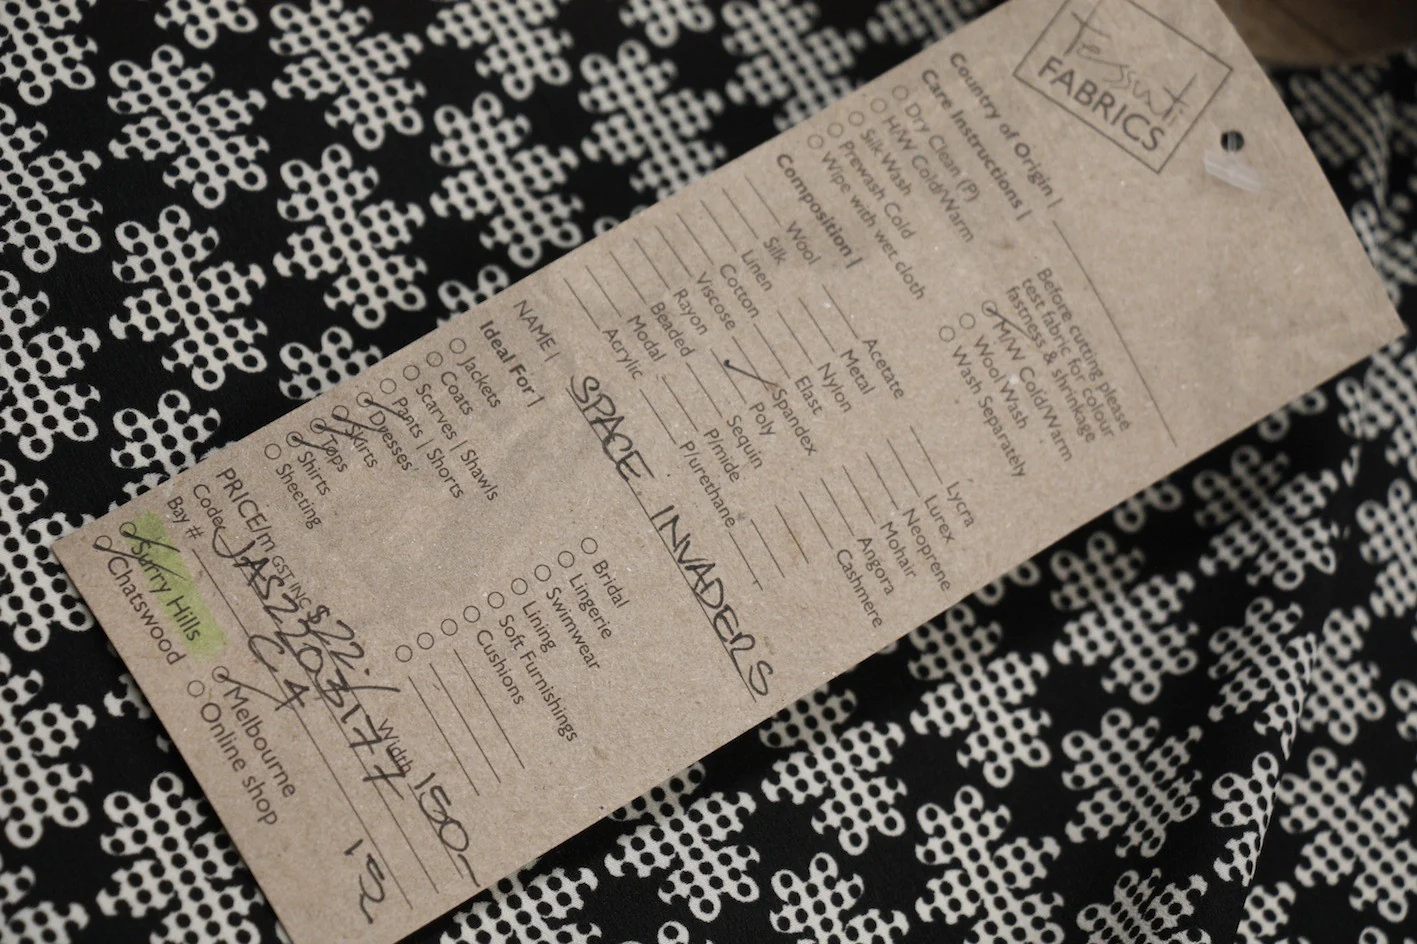 Tessuti
FABRICS
Country of Origin |
Care Instructions |
Dry Clean (P)
H/W Cold/Warm
Silk Wash
Prewash Cold
Wipe with wet cloth
Before cutting please
test fabric for colour
fastness & shrinkage
M/W Cold/Warm
Wool Wash
Wash Separately
Composition |
Wool
Silk
Linen
Cotton
Viscose
Rayon
Beaded
Modal
Acrylic
Acetate
Metal
Nylon
Elast
Spandex
Poly
Sequin
P/mide
P/urethane
Lycra
Lurex
Neoprene
Mohair
Angora
Cashmere
NAME | SPACE INVADERS
Ideal For |
Jackets
Coats
Scarves | Shawls
Pants | Shorts
Dresses
Skirts
Tops
Shirts
Sheeting
Bridal
Lingerie
Swimwear
Lining
Soft Furnishings
Cushions
PRICE/m GST INC $22.- Width 150-
Code JAS2203177
Bay # C4
Surry Hills
Chatswood
Melbourne
Online shop